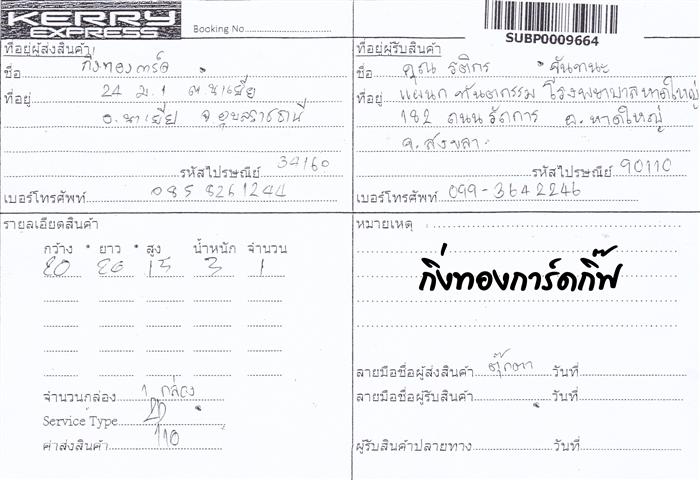 KERRY
EXPRESS
Booking No
SUBP0009664
ที่อยู่ผู้ส่งสินค้า
ชื่อ กิ่งทองการ์ด
ที่อยู่ 24 ม.1 ต นาเยีย
อ.นาเยีย จ อุบลราชธานี
รหัสไปรษณีย์ 34160
เบอร์โทรศัพท์ 085 8261244
ที่อยู่ผู้รับสินค้า
ชื่อ คุณ รติกร จันทนะ
ที่อยู่ แผนก ทันตกรรม โรงพยาบาลหาดใหญ่
182 ถนน รัถการ อ.หาดใหญ่
จ.สงขลา
รหัสไปรษณีย์ 90110
เบอร์โทรศัพท์ 099-3642246
รายลเอียดสินค้า
กว้าง * ยาว * สูง น้ำหนัก จำนวน
15 3 1
จำนวนกล่อง 1 กล่อง
Service Type 2D
ค่าส่งสินค้า 110
หมายเหตุ
กิ่งทองการ์ดกิ๊ฟ
ลายมือชื่อผู้ส่งสินค้า ตุ๊กตา วันที่
ลายมือชื่อผู้รับสินค้า วันที่
ผู้รับสินค้าปลายทาง วันที่